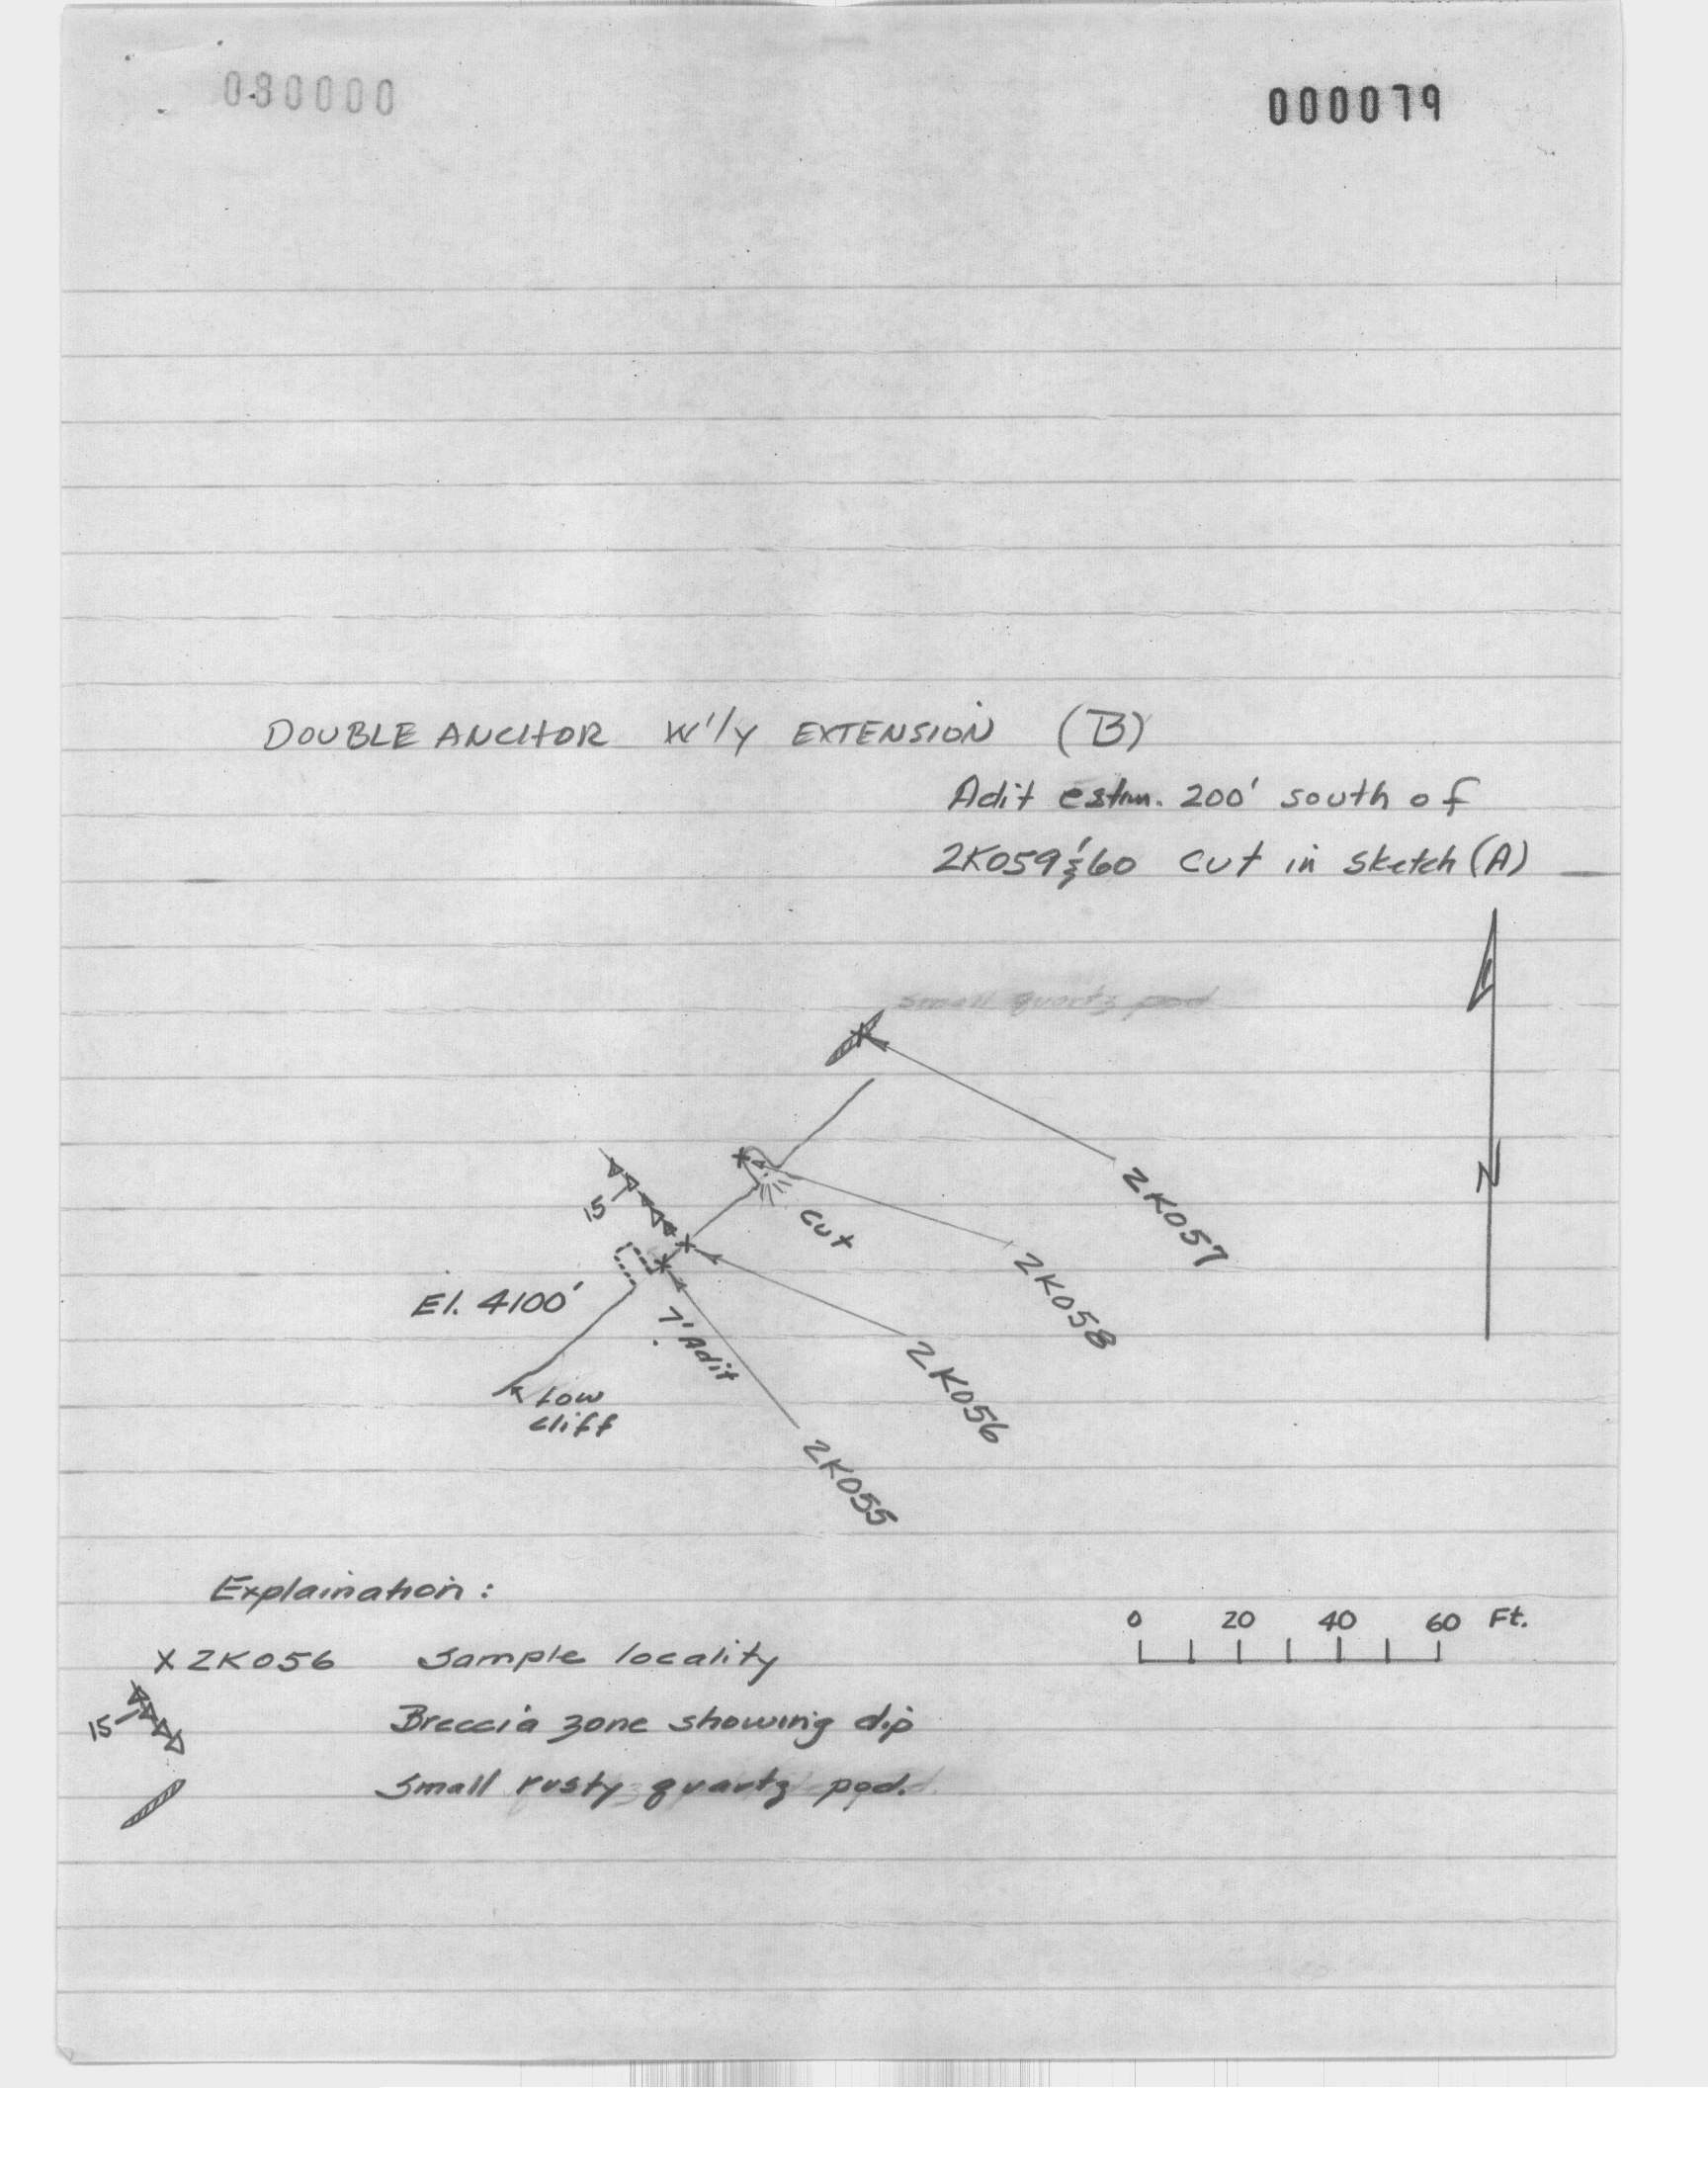 000079
DOUBLE ANCHOR W'ly EXTENSION (B)
Adit estim. 200' south of
2K059 & 60 cut in sketch (A)
small quartz pod
N
15
cut
2K057
2K058
El. 4100'
7' Adit
2K056
Low
cliff
2K055
Explaination:
0 20 40 60 Ft.
X 2K056 Sample locality
15 Breccia zone showing dip
Small rusty quartz pod.